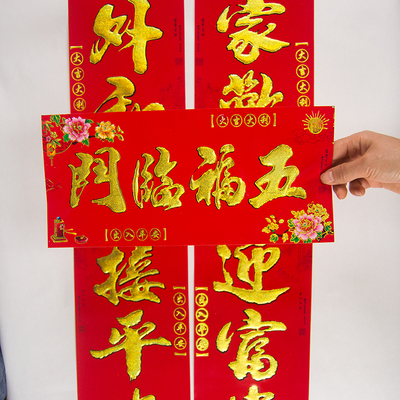 五福臨門
【大吉大利】
【出入平安】
家
迎富
【大吉大利】
【出入平安】
外和
接平
【大吉大利】
【出入平安】